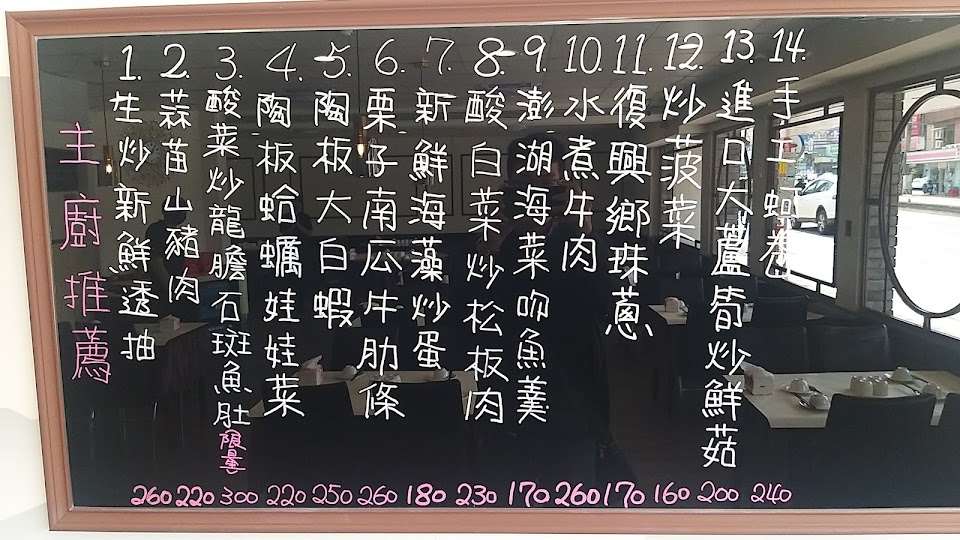 主廚推薦
1. 生炒新鮮透抽 260
2. 蒜苗山豬肉 220
3. 酸菜炒龍膽石斑魚肚 限量 300
4. 陶板蛤蠣娃娃菜 220
5. 陶板大白蝦 250
6. 栗子南瓜牛肋條 260
7. 新鮮海藻炒蛋 180
8. 酸白菜炒松板肉 230
9. 澎湖海菜吻魚羹 170
10. 水煮牛肉 260
11. 復興鄉珠蔥 170
12. 炒菠菜 160
13. 進口大蘆筍炒鮮菇 200
14. 手工蚵卷 240